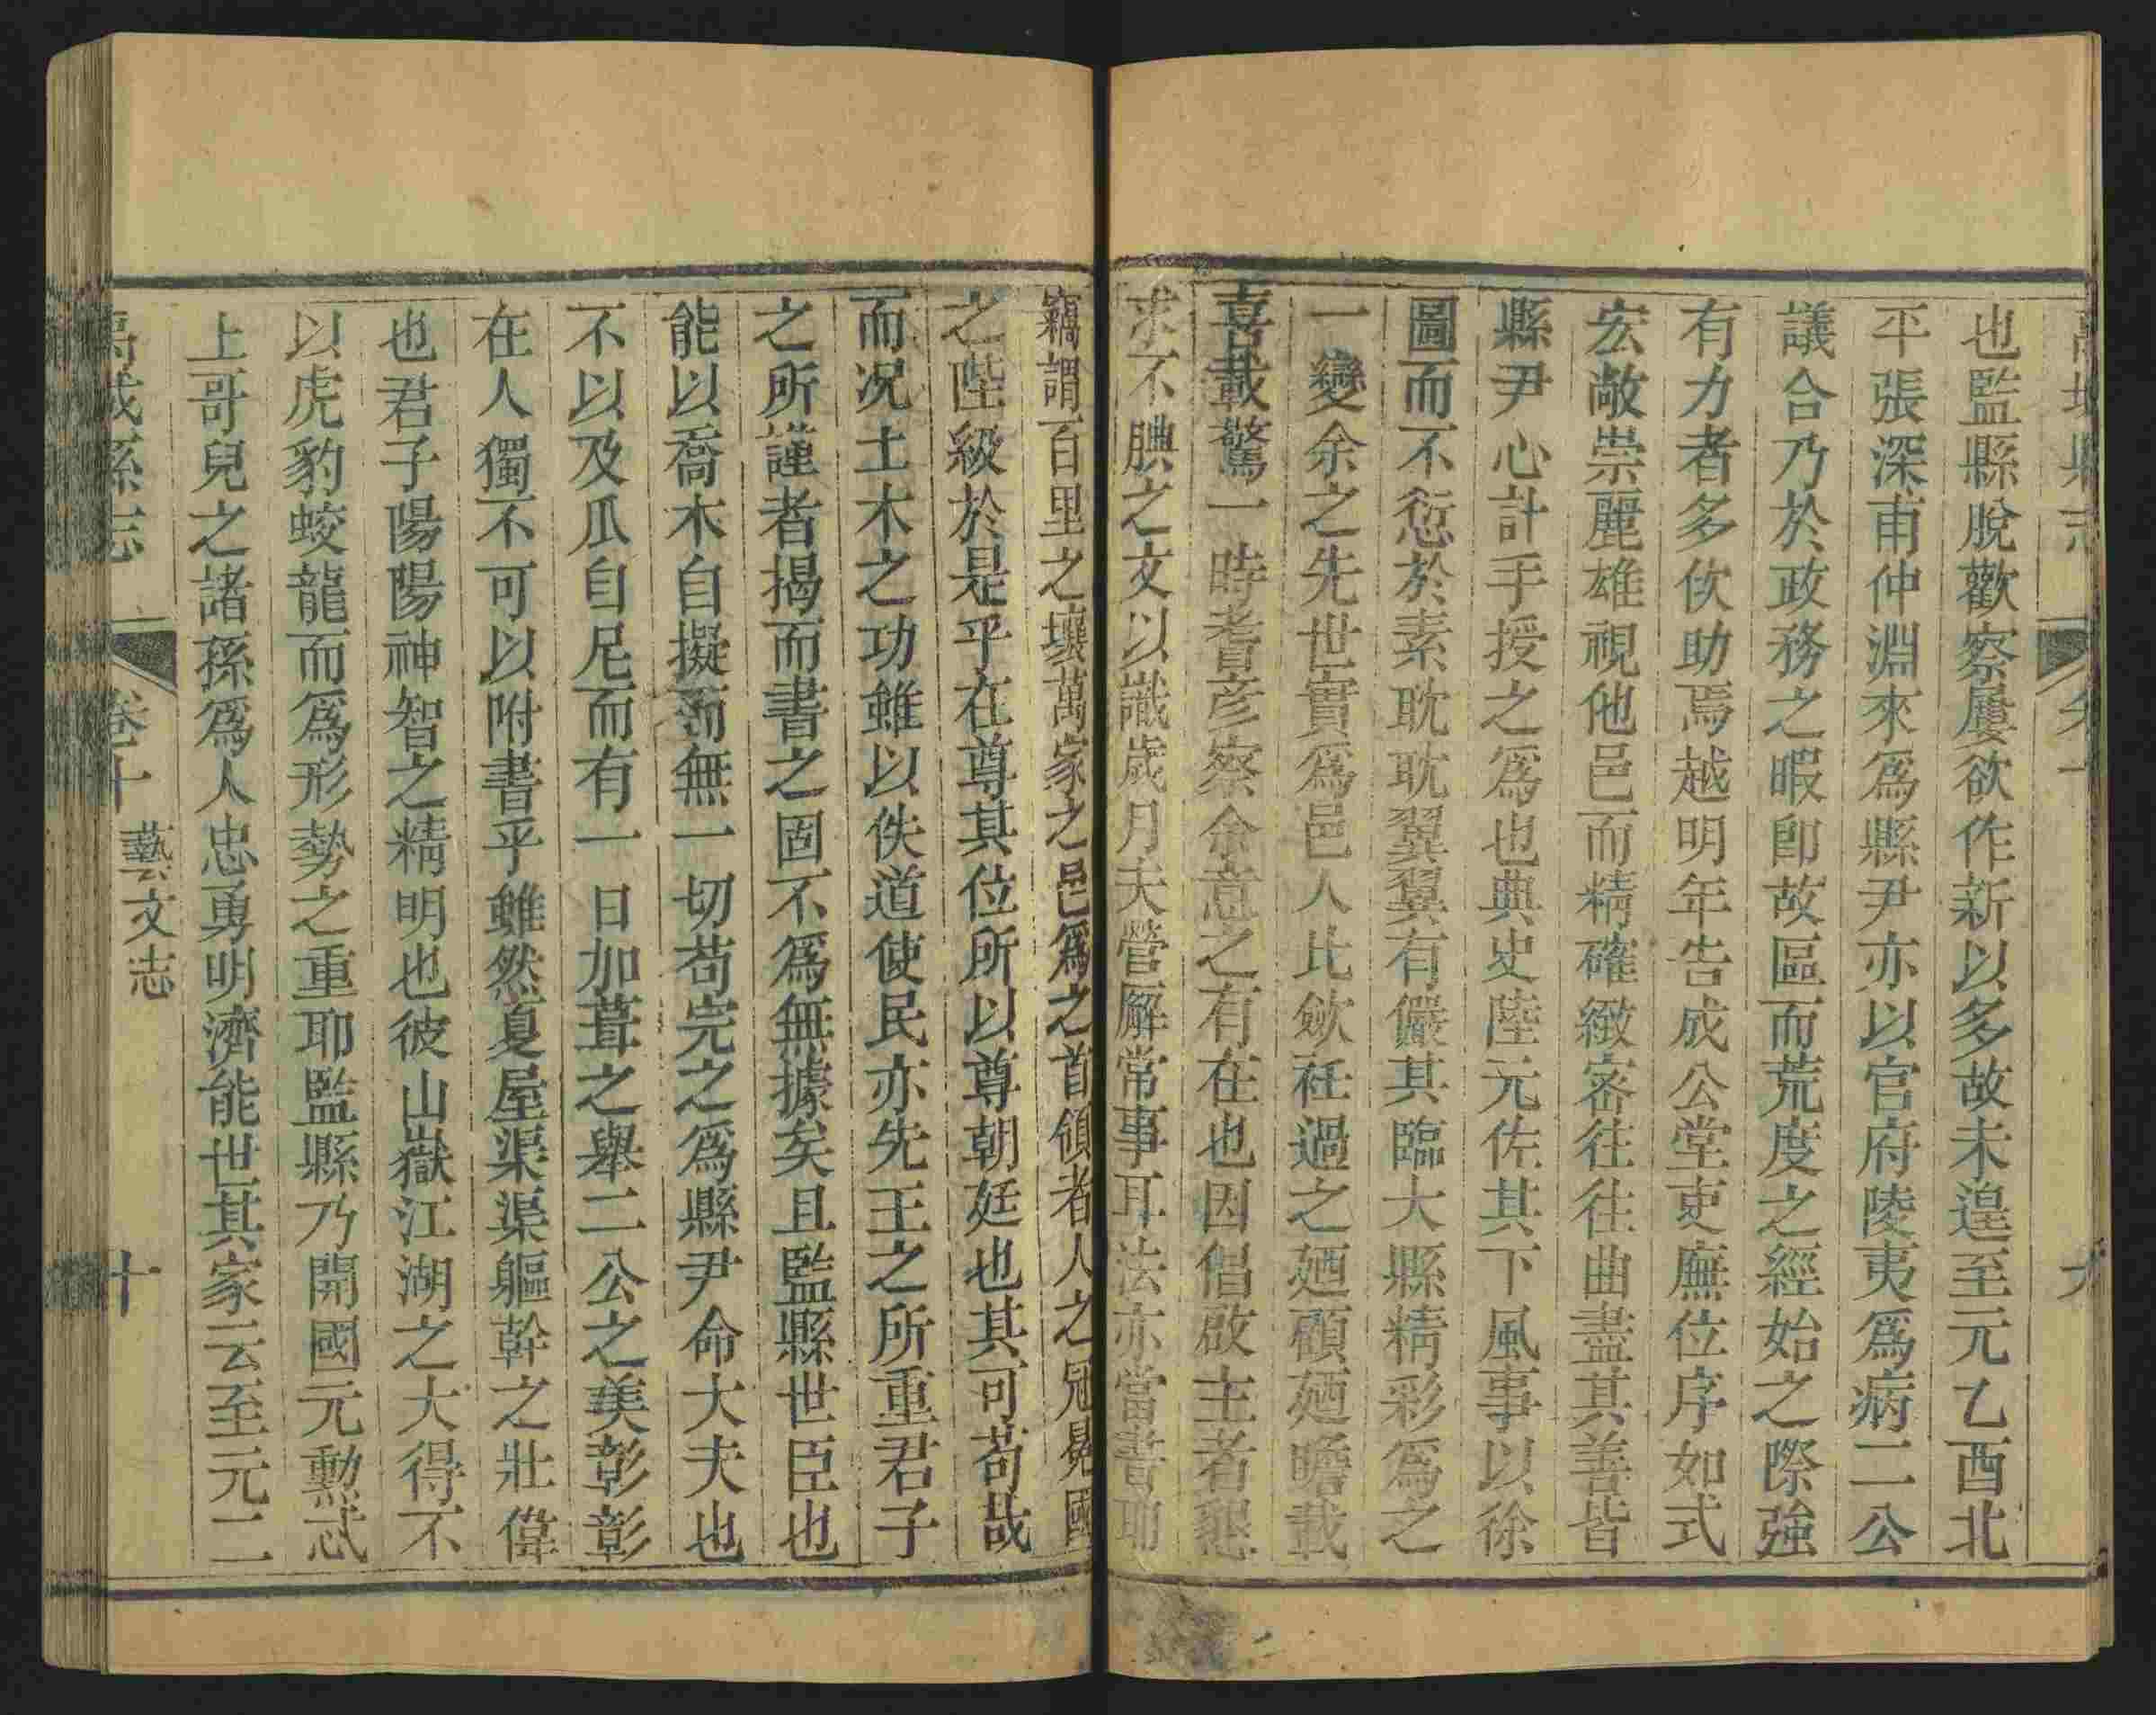 也監縣脫歡察屢欲作新以多故未遑至元乙酉北
平張深甫仲淵來爲縣尹亦以官府陵夷爲病二公
議合乃於政務之暇卽故區而荒度之經始之際強
有力者多佽助焉越明年告成公堂吏廡位序如式
宏敞崇麗雄視他邑而精確緻密往往曲盡其善皆
縣尹心計手授之爲也典史陸元佐其下風事以徐
圖而不愆於素耽耽翼翼有儼其臨大縣精彩爲之
一變余之先世實爲邑人比歛衽過之廼顧廼瞻載
喜載驚一時耆彦察余意之有在也因倡啟主者懇
求不腆之文以識歲月夫營廨常事耳法亦當書耶
竊謂百里之壤萬家之邑爲之首領者人之冠冕國
之陛級於是乎在尊其位所以尊朝廷也其可苟哉
而况土木之功雖以佚道使民亦先王之所重君子
之所謹者揭而書之固不爲無據矣且監縣世臣也
能以喬木自擬而無一切苟完之爲縣尹命大夫也
不以及瓜自尼而有一日加葺之舉二公之美彰彰
在人獨不可以附書乎雖然夏屋渠渠軀幹之壯偉
也君子陽陽神智之精明也彼山嶽江湖之大得不
以虎豹蛟龍而爲形勢之重耶監縣乃開國元勳忒
上哥兒之諸孫爲人忠勇明濟能世其家云至元二
卷十 藝文志 十